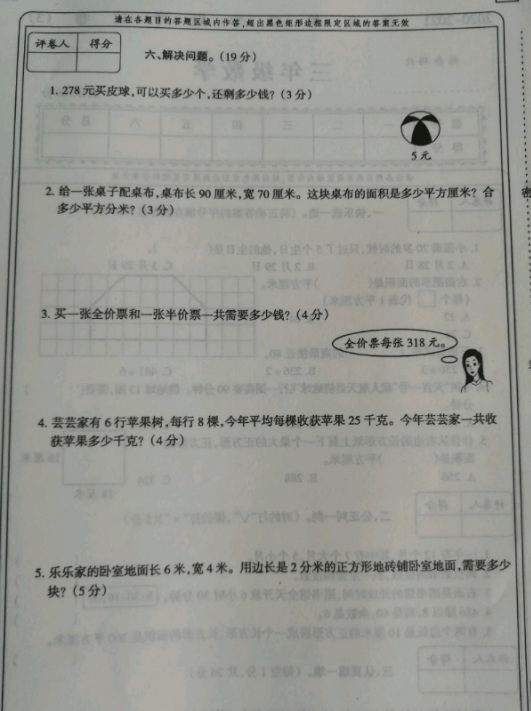 请在各题目的答题区域内作答,超出黑色矩形边框限定区域的答案无效
评卷人 得分
六、解决问题。(19分)
1. 278元买皮球,可以买多少个,还剩多少钱?(3分)
5元
2. 给一张桌子配桌布,桌布长90厘米,宽70厘米。这块桌布的面积是多少平方厘米?合
多少平方分米?(3分)
3. 买一张全价票和一张半价票一共需要多少钱?(4分)
全价票每张318元。
4. 芸芸家有6行苹果树,每行8棵,今年平均每棵收获苹果25千克。今年芸芸家一共收
获苹果多少千克?(4分)
5. 乐乐家的卧室地面长6米,宽4米。用边长是2分米的正方形地砖铺卧室地面,需要多少
块?(5分)